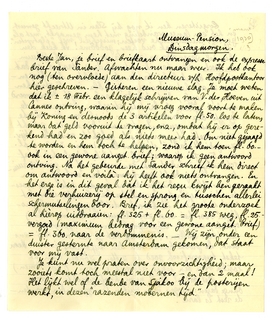 Museum-Pension,
Dinsdagmorgen.
Beste Jan, je brief en briefkaart ontvangen en ook de expresse
brief van Sander. Afwachten nu maar weer. Ik heb ook
nog (ten overvloede) aan den directeur v/h Hoofdpostkantoor
hier geschreven. — Gisteren een nieuwe slag. Je moet weten
dat ik ± 18 Febr. een klagelijk schrijven van v der Hoeven uit
Cannes ontving, waarin hij mij vroeg vooral voort te maken
bij Koning en dernoods de 3 artikelen voor fl. 50. los te laten,
maar dat geld vooruit te vragen, enz, omdat hij en zijn ge-
zond en zoo goed als niets meer had. Om niet geplaagd
te worden en hem toch te helpen, zond ik hem toen fl. 60.—
ook in een gewone aangét. brief, waarop ik geen antwoord
ontving. Na het gebeurde met Sander schreef ik hem direct
om antwoord en voilà: hij heeft ook niets ontvangen. En
het erge is in dit geval dat ik het reçu kwijt ben geraakt
met die verhuizing op stel en sprong en tusschen allerlei
schermutselingen door. Bref, ik zie het groote onderzoek
al hierop uitdraaien: fl. 325 + fl. 60. = fl. 385 weg, fl. 25-
vergoed (maximum bedrag voor een gewone aangét. brief)
= fl. 360. naar de verdommenis. — Wij zijn onder een
duister gesternte naar Amsterdam gekomen, dat staat
voor mij vast.
Je kunt nu wel praten over onvoorzichtigheid; maar
zooiets komt toch meestal niet voor — en dan 2 maal!
Het lijkt wel of de bende van Jakoo bij de posterijen
werkt, in dezen razenden modernen tijd.